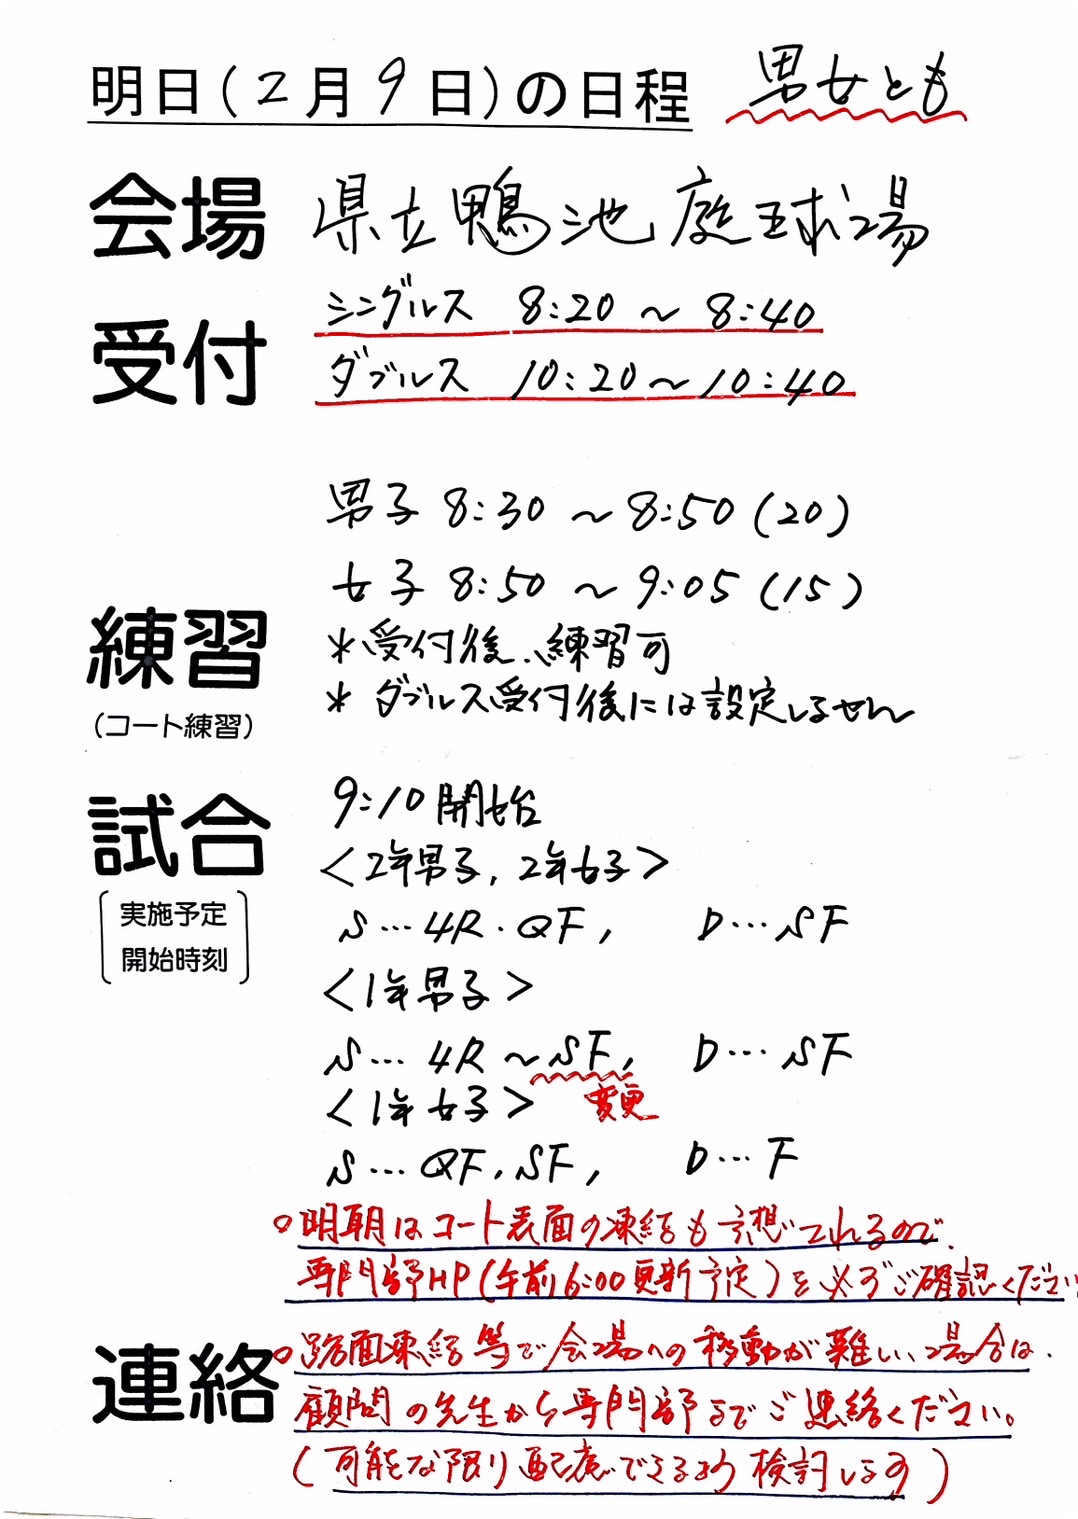 明日(2月9日)の日程 男女とも
会場 県立鴨池庭球場
受付 シングルス 8:20 ～ 8:40
ダブルス 10:20～10:40
男子 8:30 ～ 8:50 (20)
女子 8:50 ～ 9:05 (15)
練習 *受付後、練習可
(コート練習) * ダブルス受付後には設定しません
試合 9:10 開始
実施予定
開始時刻
<2年男子, 2年女子>
S…4R・QF, D…SF
<1年男子>
S…4R～SF, D…SF
<1年女子> 変更
S…QF, SF, D…F
○明朝はコート表面の凍結も予想されるので、
専門部HP(午前6:00更新予定)を必ずご確認ください
連絡 ○路面凍結等で会場への移動が難しい場合は、
顧問の先生から専門部までご連絡ください。
(可能な限り配慮できるよう検討します)